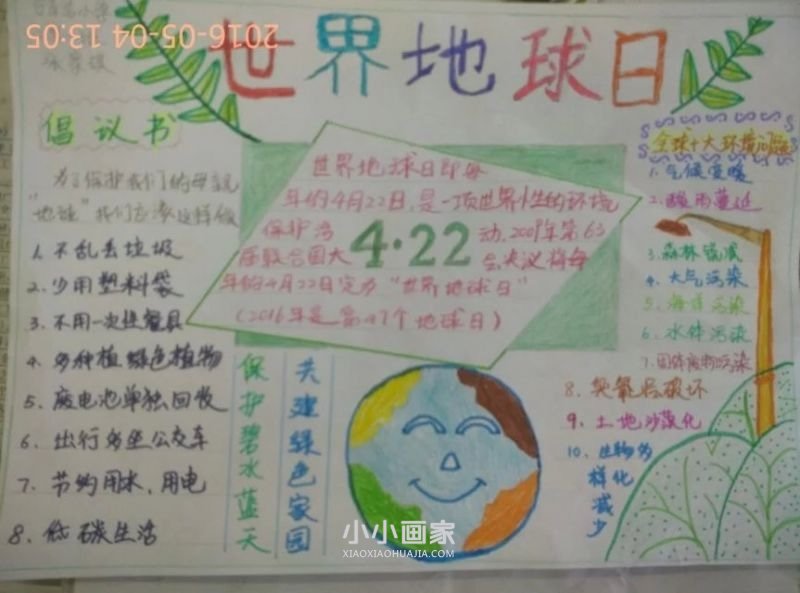 2016-05-04 13:05
世界地球日
倡议书
为了保护我们的母亲
"地球"我们应该这样做
1、不乱丢垃圾
2、少用塑料袋
3、不用一次性餐具
4、多种植绿色植物
5、废电池单独回收
6、出行多坐公交车
7、节约用水、用电
8、低碳生活
世界地球日即每
年的4月22日,是一项世界性的环境
保护活 4·22 动,2009年第63
届联合国大 会决议将每
年的4月22日定为"世界地球日"
(2016年是第47个地球日)
保护碧水蓝天
共建绿色家园
全球十大环境问题
1、气候变暖
2、酸雨蔓延
3、森林锐减
4、大气污染
5、海洋污染
6、水体污染
7、固体废物污染
8、臭氧层破坏
9、土地沙漠化
10、生物多
样化
减
少
小小画家
XIAOXIAOHUAJIA.COM